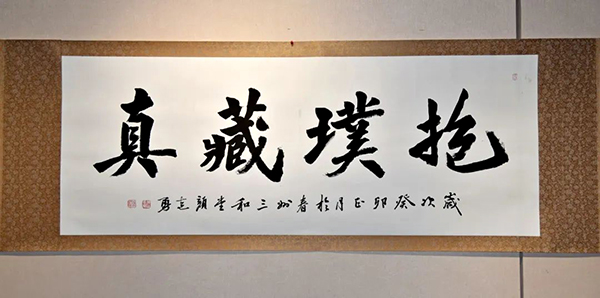 抱璞藏真
歲次癸卯正月於春州三和堂顏立勇